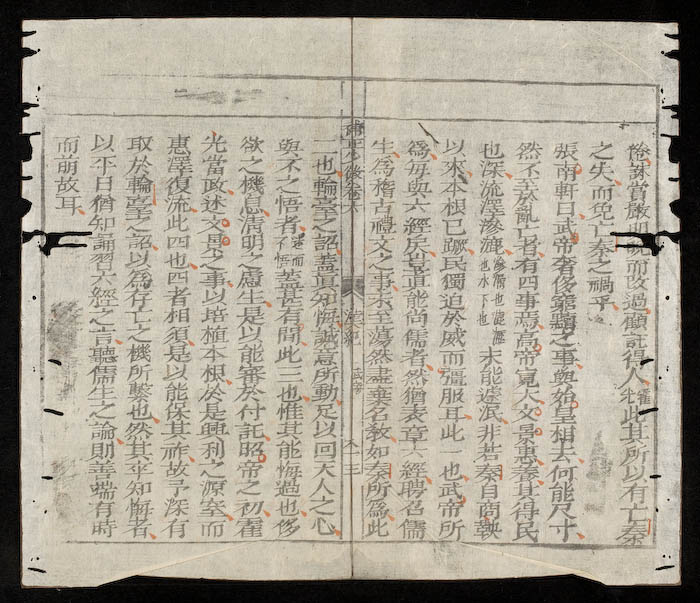 倦誅賞嚴明晩而改過顧託得人霍光此其所以有亡秦
之失而免亡秦之禍乎
張南軒曰武帝奢侈窮黷之事與始皇相去何能尺寸
然不至於亂亡者有四事焉高帝寬大文景惠養其得民
也深流澤滲漉也水下也未能遽泯非若秦自商鞅
以來本根已蹶民獨迫於威而彊服耳此一也武帝所
爲每與六經戾豈眞能尚儒者然猶表章六經聘召儒
生爲稽古禮文之事未至蕩然盡棄名敎如秦所爲此
卷六 漢紀 武帝 十三
二也輪臺之詔蓋眞知悔誠意所動足以回天人之心
與不之悟者而不悟蓋甚有間此三也惟其能悔過也侈
欲之機息清明之慮生是以能審於付託昭帝之初霍
光當政述文景之事以培植本根於是興利之源窒而
惠澤復流此四也四者相須是以能保其祚故予深有
取於輪臺之詔以爲存亡之機所繫也然其卒知悔者
以平日猶知誦習六經之言聽儒生之論則善端有時
而萌故耳